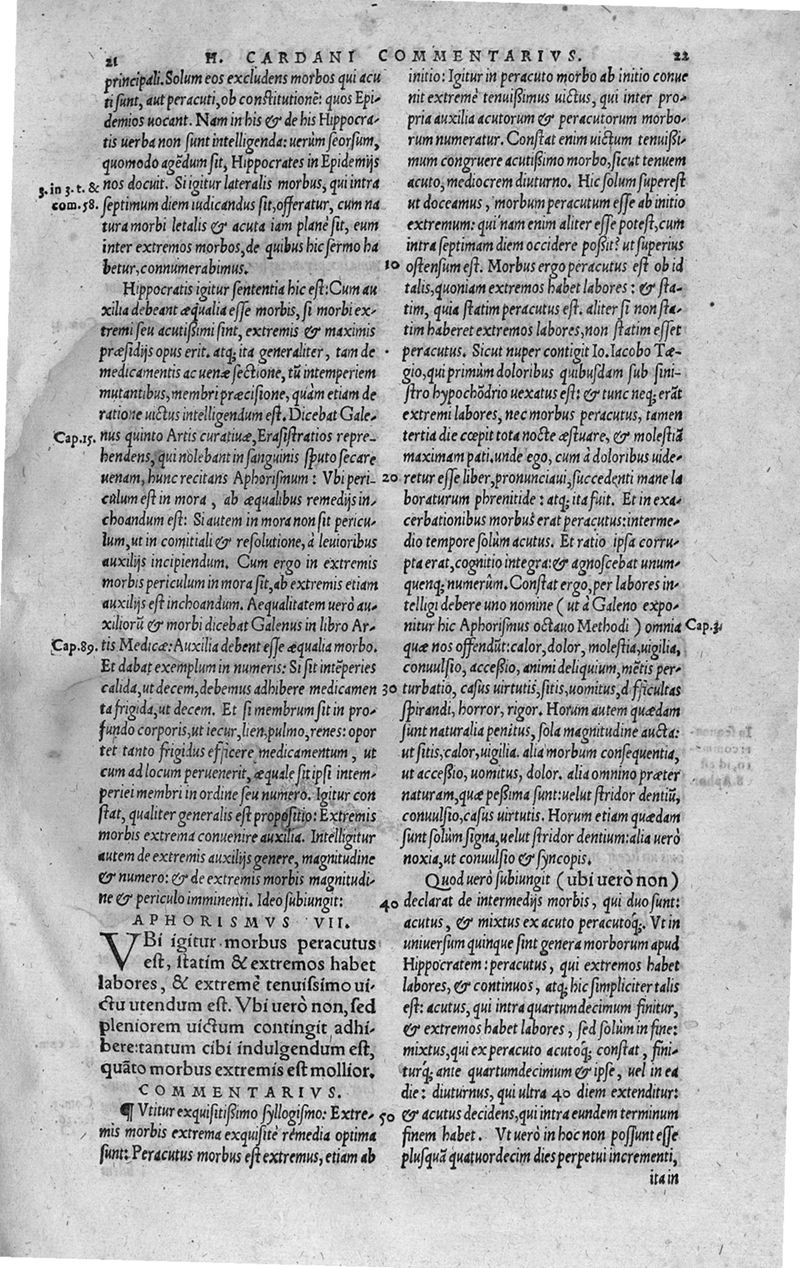 21 H. CARDANI COMMENTARIVS. 22
principali. Solum eos excludens morbos qui acu
ti sunt, aut peracuti, ob constitutionē: quos Epi-
demios uocant. Nam in his & de his Hippocra-
tis uerba non sunt intelligenda: uerùm seorsum,
quomodo agēdum sit, Hippocrates in Epidemijs
3. in 3. t. & nos docuit. Si igitur lateralis morbus, qui intra
com. 58. septimum diem iudicandus sit, offeratur, cum na
tura morbi letalis & acuta iam planè sit, eum
inter extremos morbos, de quibus hic sermo ha
betur, connumerabimus.
Hippocratis igitur sententia hic est: Cum au
xilia debeant æqualia esse morbis, si morbi ex-
tremi seu acutißimi sint, extremis & maximis
præsidijs opus erit. atq; ita generaliter, tam de
medicamentis ac uenæ sectione, tū intemperiem
mutantibus, membri præcisione, quàm etiam de
ratione uictus intelligendum est. Dicebat Gale-
Cap. 15. nus quinto Artis curatiuæ, Erasistratios repre-
hendens, qui nolebant in sanguinis sputo secare
uenam, hunc recitans Aphorismum: Vbi peri-
culum est in mora, ab æqualibus remedijs in-
choandum est: Si autem in mora non sit pericu-
lum, ut in comitiali & resolutione, à leuioribus
auxilijs incipiendum. Cum ergo in extremis
morbis periculum in mora sit, ab extremis etiam
auxilijs est inchoandum. Aequalitatem uerò au-
xiliorū & morbi dicebat Galenus in libro Ar-
Cap. 89. tis Medicæ: Auxilia debent esse æqualia morbo.
Et dabat exemplum in numeris: Si sit intēperies
calida, ut decem, debemus adhibere medicamen
ta frigida, ut decem. Et si membrum sit in pro-
fundo corporis, ut iecur, lien, pulmo, renes: opor
tet tanto frigidus efficere medicamentum, ut
cum ad locum peruenerit, æquale sit ipsi intem-
periei membri in ordine seu numero. Igitur con
stat, qualiter generalis est propositio: Extremis
morbis extrema conuenire auxilia. Intelligitur
autem de extremis auxilijs genere, magnitudine
& numero: & de extremis morbis magnitudi-
ne & periculo imminenti. Ideo subiungit:
APHORISMVS VII.
VBi igitur morbus peracutus
est, statim & extremos habet
labores, & extremè tenuissimo ui-
ctu utendum est. Vbi uerò non, sed
pleniorem uictum contingit adhi-
bere: tantum cibi indulgendum est,
quāto morbus extremis est mollior.
COMMENTARIVS.
¶ Vtitur exquisitißimo syllogismo: Extre-
mis morbis extrema exquisitè remedia optima
sunt: Peracutus morbus est extremus, etiam ab
initio: Igitur in peracuto morbo ab initio conue
nit extremè tenuißimus uictus, qui inter pro-
pria auxilia acutorum & peracutorum morbo-
rum numeratur. Constat enim uictum tenuißi-
mum congruere acutißimo morbo, sicut tenuem
acuto, mediocrem diuturno. Hic solum superest
ut doceamus, morbum peracutum esse ab initio
extremum: qui nam enim aliter esse potest, cum
intra septimam diem occidere poßit? ut superius
10 ostensum est. Morbus ergo peracutus est ob id
talis, quoniam extremos habet labores: & sta-
tim, quia statim peracutus est. aliter si non sta-
tim haberet extremos labores, non statim esset
peracutus. Sicut nuper contigit Io. Iacobo Tæ-
gio, qui primùm doloribus quibusdam sub sini-
stro hypochōdrio uexatus est: & tunc neq; erāt
extremi labores, nec morbus peracutus, tamen
tertia die cœpit tota nocte æstuare, & molestiā
maximam pati. unde ego, cum à doloribus uide-
20 retur esse liber, pronunciaui, succedenti mane la
boraturum phrenitide: atq; ita fuit. Et in exa-
cerbationibus morbus erat peracutus: interme-
dio tempore solùm acutus. Et ratio ipsa corru-
pta erat, cognitio integra: & agnoscebat unum-
quenq; numerùm. Constat ergo, per labores in-
telligi debere uno nomine (ut à Galeno expo-
nitur hic Aphorismus octauo Methodi) omnia Cap. 3.
quæ nos offendūt: calor, dolor, molestia, uigilia,
conuulsio, acceßio, animi deliquium, mētis per-
30 turbatio, casus uirtutis, sitis, uomitus, d fficultas
spirandi, horror, rigor. Horum autem quædam
sunt naturalia penitus, sola magnitudine aucta:
ut sitis, calor, uigilia. alia morbum consequentia,
ut acceßio, uomitus, dolor. alia omnino præter
naturam, quæ peßima sunt: uelut stridor dentiū,
conuulsio, casus uirtutis. Horum etiam quædam
sunt solùm signa, uelut stridor dentium: alia uerò
noxia, ut conuulsio & syncopis.
Quod uerò subiungit (ubi uerò non)
40 declarat de intermedijs morbis, qui duo sunt:
acutus, & mixtus ex acuto peracutoq;. Vt in
uniuersum quinque sint genera morborum apud
Hippocratem: peracutus, qui extremos habet
labores, & continuos, atq; hic simpliciter talis
est: acutus, qui intra quartumdecimum finitur,
& extremos habet labores, sed solùm in fine:
mixtus, qui ex peracuto acutoq; constat, fini-
turq; ante quartumdecimum & ipse, uel in ea
die: diuturnus, qui ultra 40 diem extenditur:
50 & acutus decidens, qui intra eundem terminum
finem habet. Vt uerò in hoc non possunt esse
plusquā quatuordecim dies perpetui incrementi,
ita in